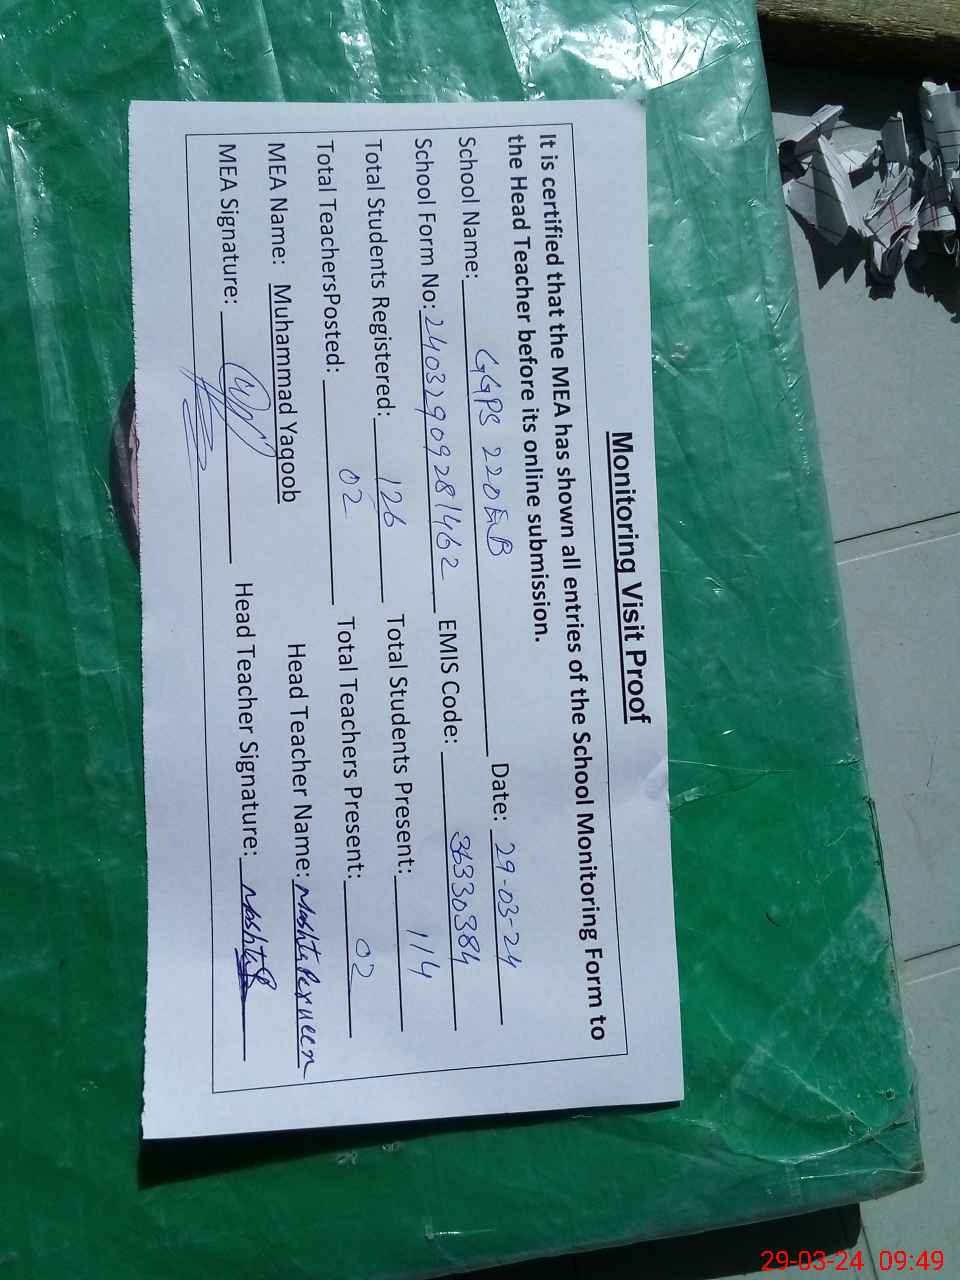 Monitoring Visit Proof
It is certified that the MEA has shown all entries of the School Monitoring Form to
the Head Teacher before its online submission.
School Name: GGPS 220 EB Date: 29-03-24
School Form No: 24032909281462 EMIS Code: 36330384
Total Students Registered: 126 Total Students Present: 114
Total TeachersPosted: 02 Total Teachers Present: 02
MEA Name: Muhammad Yaqoob Head Teacher Name: Perveen
MEA Signature: Head Teacher Signature:
29-03-24 09:49